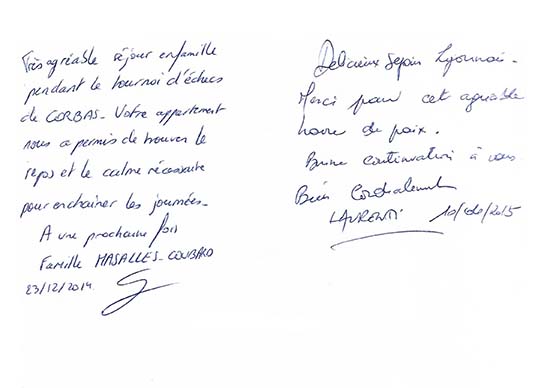 Très agréable séjour en famille
pendant le tournoi d'échecs
de CORBAS - Votre appartement
nous a permis de trouver le
repos et le calme nécessaire
pour enchaîner les journées -
A une prochaine fois
Famille MASALLES - COUBARD
23/12/2014
Délicieux séjour Lyonnais -
Merci pour cet agréable
havre de paix.
Bonne continuation à vous
Bien Cordialement
LAURENTI 10/ /2015